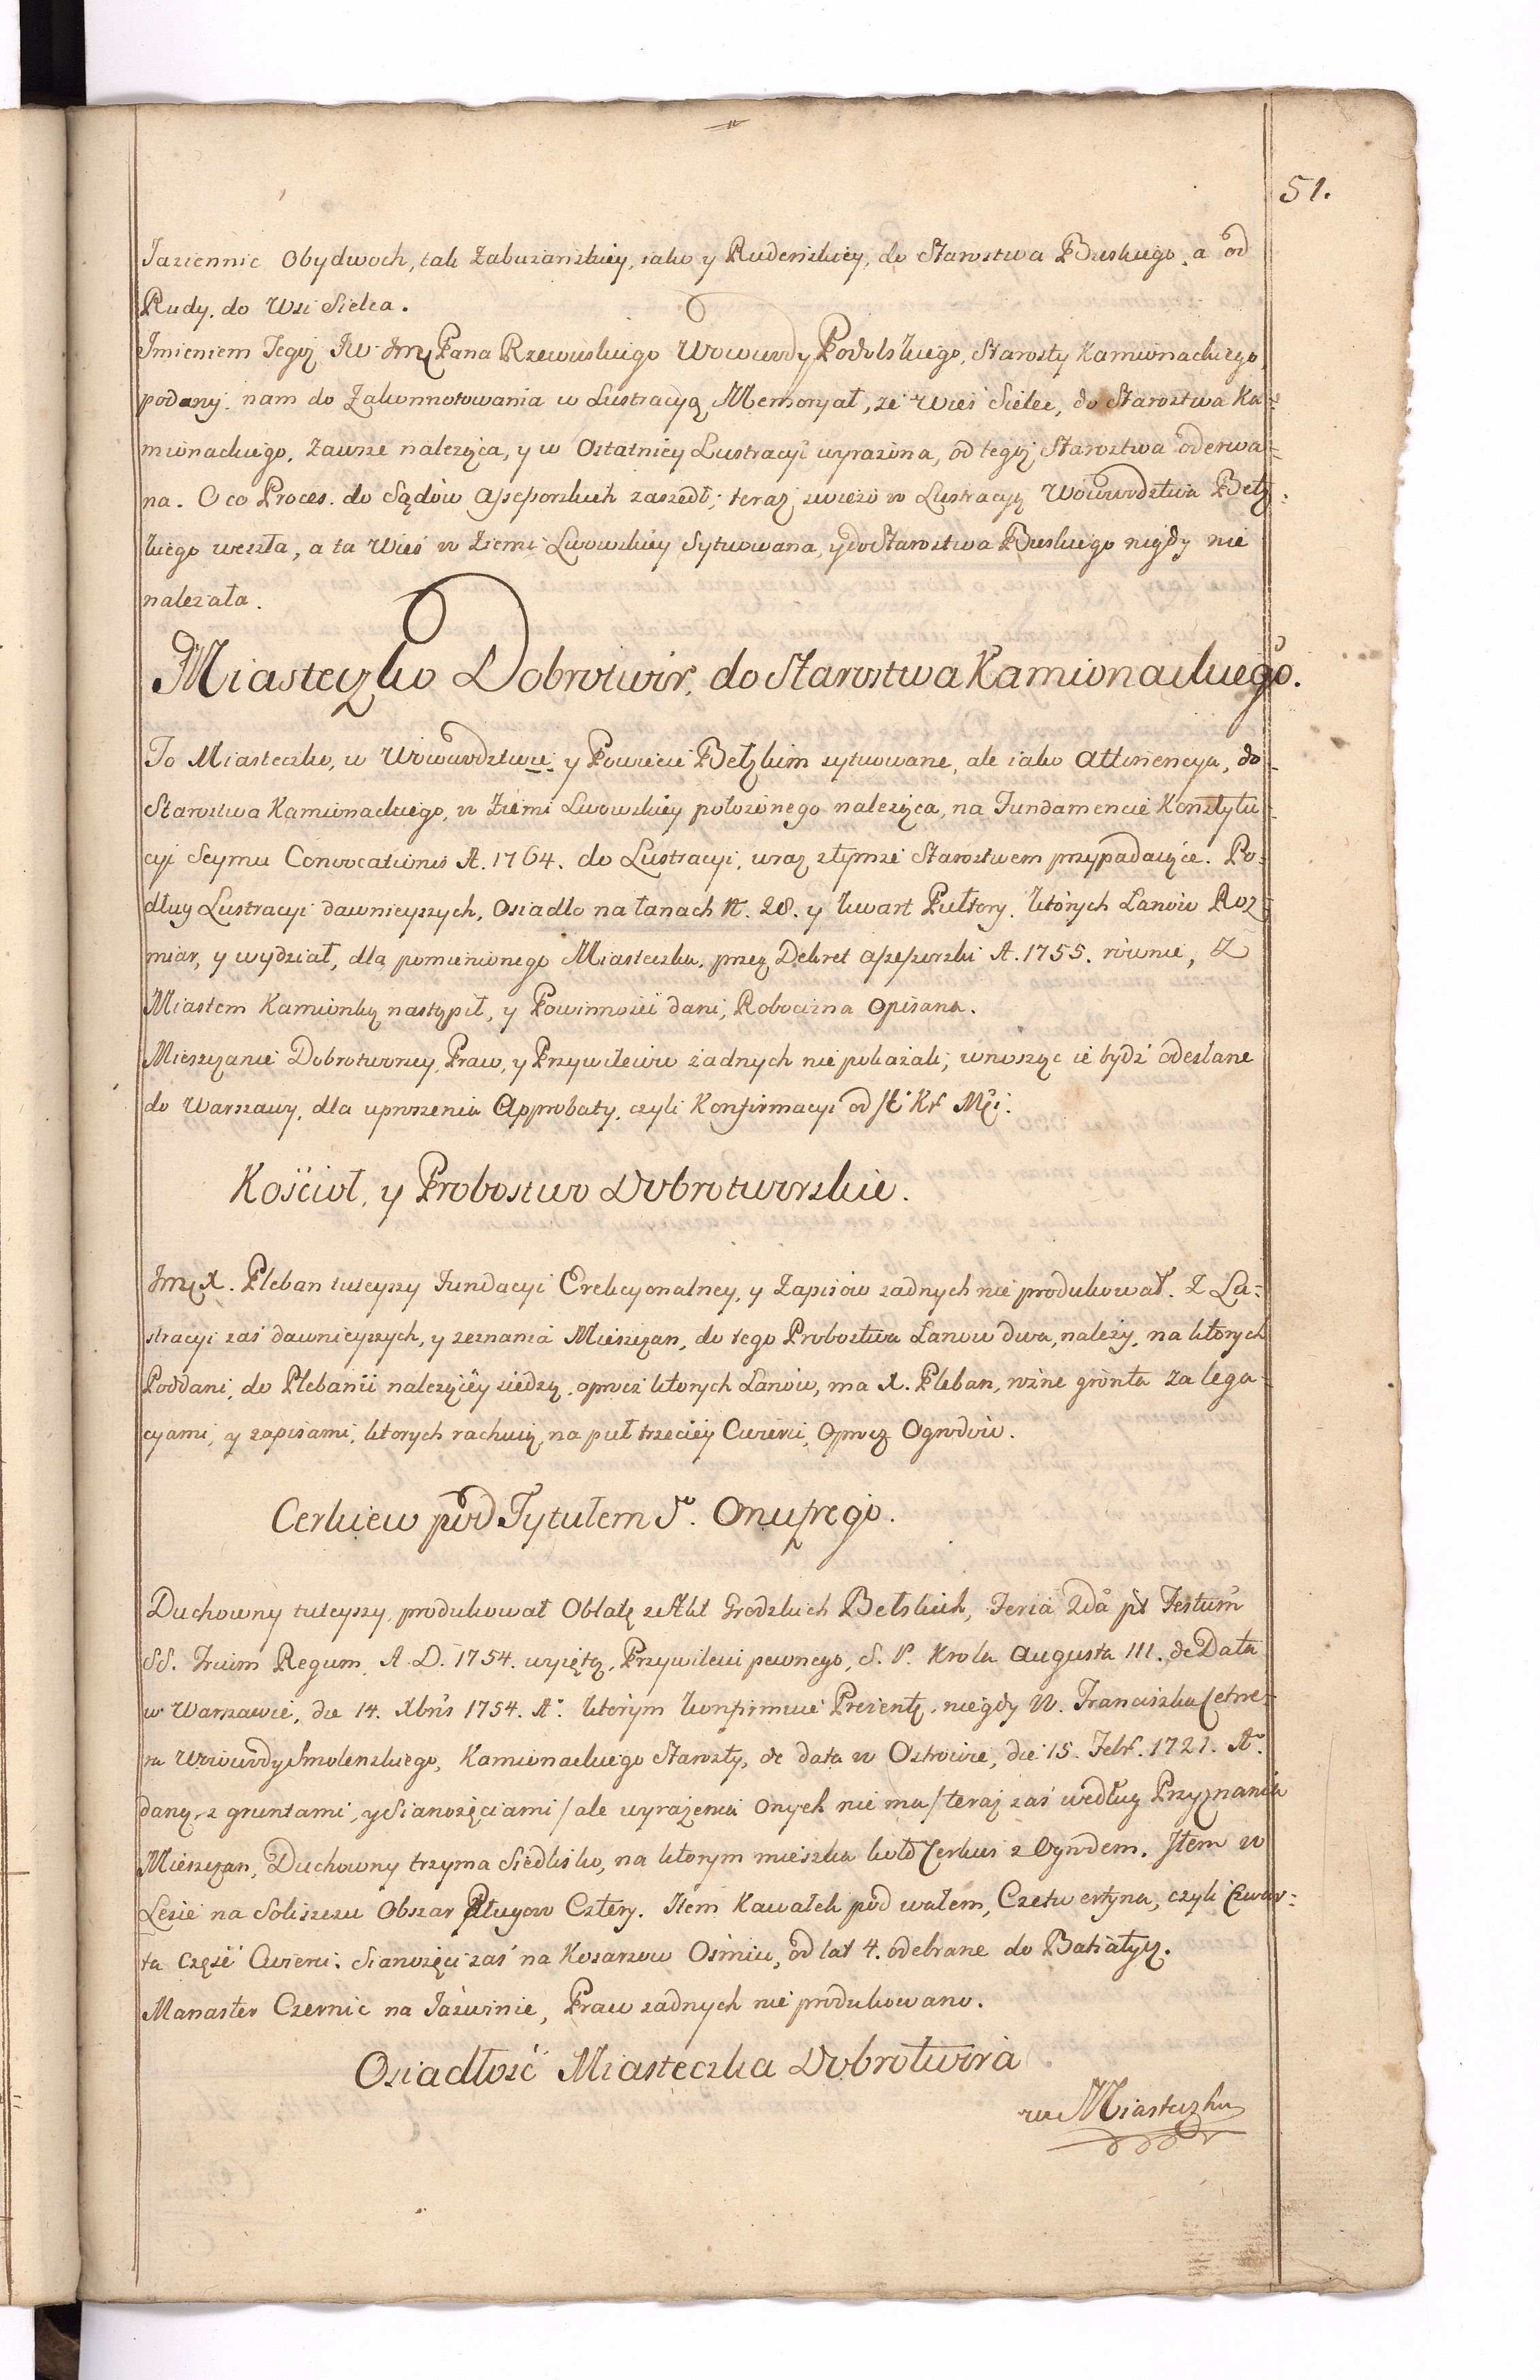 51.
Jaziennic Obydwoch, tak Zabuzanskiey, iako y Rudenskiey, do Starostwa Buskiego, a od
Rudy, do Wsi Sielca.
Imieniem Tegoż JW Jmć Pana Rzewuskiego Woiewody Podolskiego, Starosty Kamionackiego,
podany nam do Zakonnotowania w Lustracyą Memoryał, że Wieś Sielec, do Starostwa Ka-
mionackiego, zawsze należąca, y w Ostatniey Lustracyi wyrażona, od tegoż Starostwa oderwa-
na. O co Proces do Sądów Assessorskich zaszedł; teraz swieżo w Lustracyą Wowodztwa Bełz-
kiego weszła, a ta Wieś w Ziemi Lwowskiey Sytuowana, y do Starostwa Buskiego nigdy nie
należała.
Miasteczko Dobrotwir, do Starostwa Kamionackiego.
To Miasteczko, w Wowodztwie y Powiecie Bełzkim sytuowane, ale iako Attinencya, do
Starostwa Kamionackiego, w Ziemi Lwowskiey położonego należąca, na Fundamencie Konstytu-
cyi Seymu Convocationis A. 1764. do Lustracyi, wraz z tymże Starostwem przypadaiące. Po-
dług Lustracyi dawnieyszych, Osiadło na łanach N. 28. y kwart Pułtory, których Łanow Roz-
miar, y wydział, dla pomienionego Miasteczka, przez Dekret assessorski A. 1755. równie, Z
Miastem Kamionką nastąpił, y Powinności dani, Robocizna Opisana.
Mieszczanie Dobrotworscy, Praw, y Przywileiow żadnych nie pokazali; wnosząc ie bydź odesłane
do Warszawy, dla uproszenia Approbaty, czyli Konfirmacyi od JE Kr Mći.
Kościoł, y Probostwo Dobrotworskie.
Jmć X. Pleban tuteyszy Fundacyi Erekcyonalney, y Zapisow żadnych nie produkował. Z Lu-
stracyi zaś dawnieyszych, y zeznania Mieszczan, do tego Probostwa Łanow dwa, należy, na ktorych
Poddani, do Plebanii należącey siedzą, oprocz ktorych Łanow, ma X. Pleban, rożne grónta za lega-
cyami, y zapisami, ktorych rachuią na puł trzeciey Cwierci, Oprocz Ogrodów.
Cerkiew pod Tytułem S. Onufrego.
Duchowny tuteyszy, produkował Oblatę z Akt Grodzkich Bełskich, Feria 2da pt Festum
SS. Trium Regum, A. D. 1754. wyiętą, Przywileiu pewnego, S. P. Krola Augusta III. de Data
w Warszawie, die 14. Xbris 1754. Ao. ktorym konfirmuie Prezentę, niegdy W. Franciszka Cetne-
ra Woiewody Smolenskiego, Kamionackiego Starosty, de data w Ostrowie, die 15. Febr. 1721. Ao.
daną, z gruntami, y Sianożęciami / ale wyrażenia onych nie ma / teraz zaś według Przyznania
Mieszczan, Duchowny trzyma Siedlisko, na ktorym mieszka koło Cerkwi z Ogrodem. Item w
Lesie na Soliszczu Obszar Pługow Cztery. Item Kawałek pod wałem, Czetwertyna, czyli Czwar-
ta Część Cwierci. Sianożęci zaś na Kosarzow Ośmiu, od lat 4. odebrane do Batiatycz.
Manaster Czernic na Jaźwinie, Praw żadnych nie produkowano.
Osiadłość Miasteczka Dobrotwora
w Miasteczku